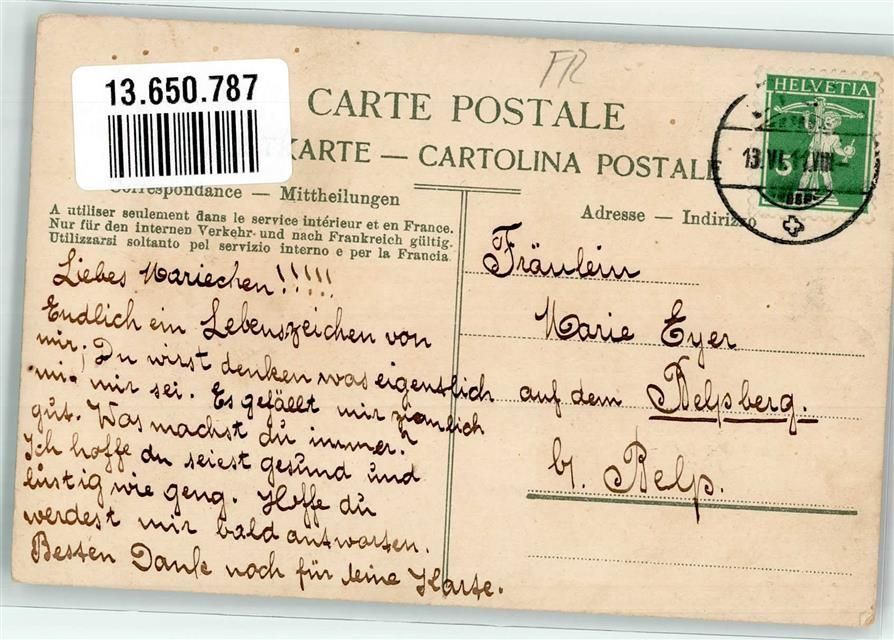 FR
13.650.787
CARTE POSTALE
KARTE — CARTOLINA POSTALE
Correspondance — Mittheilungen
A utiliser seulement dans le service intérieur et en France.
Nur für den internen Verkehr und nach Frankreich gültig.
Utilizzarsi soltanto pel servizio interno e per la Francia
Adresse — Indirizzo
HELVETIA
5
13.VI.11.VIII
Liebes Mariechen!!!!!
Endlich ein Lebenszeichen von
mir. Du wirst denken was eigentlich
mit mir sei. Es gefällt mir ziemlich
gut. Was machst du immer?
Ich hoffe du seiest gesund und
lustig wie geng. Hoffe du
werdest mir bald antworten.
Besten Dank noch für deine Karte.
Fräulein
Marie Eyer
auf dem Belpberg.
b/. Belp.